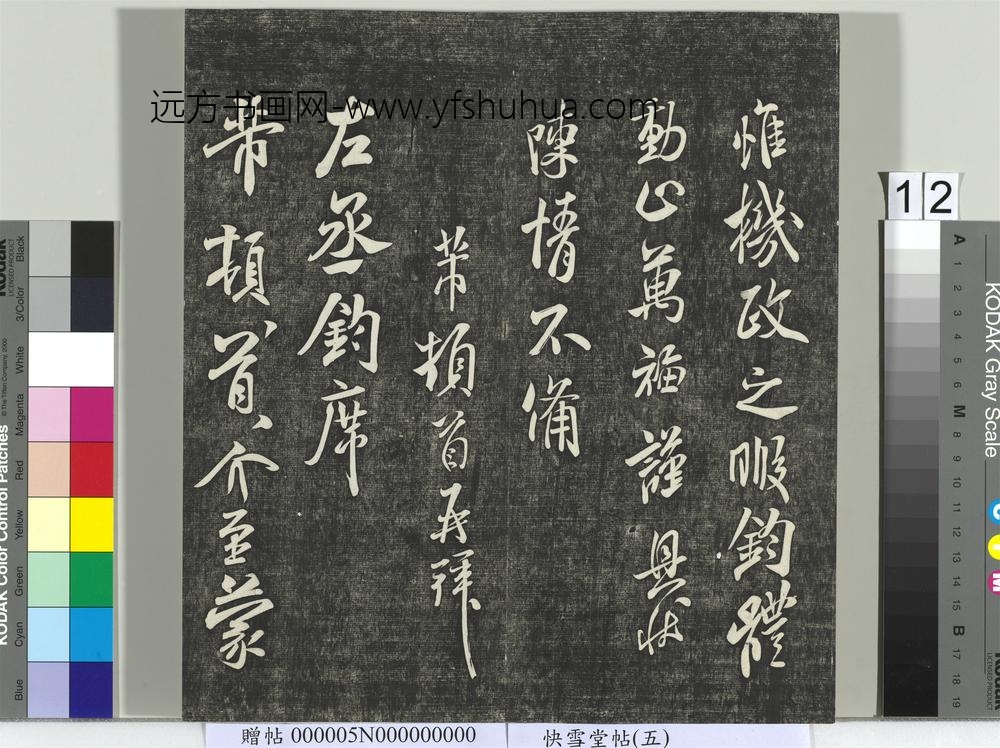 惟機政之暇鈞體
動止萬福謹具狀
陳情不備
芾頓首再拜
左丞鈞席
芾頓首介至蒙
远方书画网-www.yfshuhua.com
12
贈帖 000005N000000000
快雪堂帖(五)
KODAK Color Control Patches
© The Tiffen Company, 2000
Kodak
LICENSED PRODUCT
Black
3/Color
White
Magenta
Red
Yellow
Green
Cyan
Blue
KODAK Gray Scale
A 1 2 3 4 5 6 M 8 9 10 11 12 13 14 15 B 17 18 19
C
Y
M
Kodak
LICENSED PRODUCT